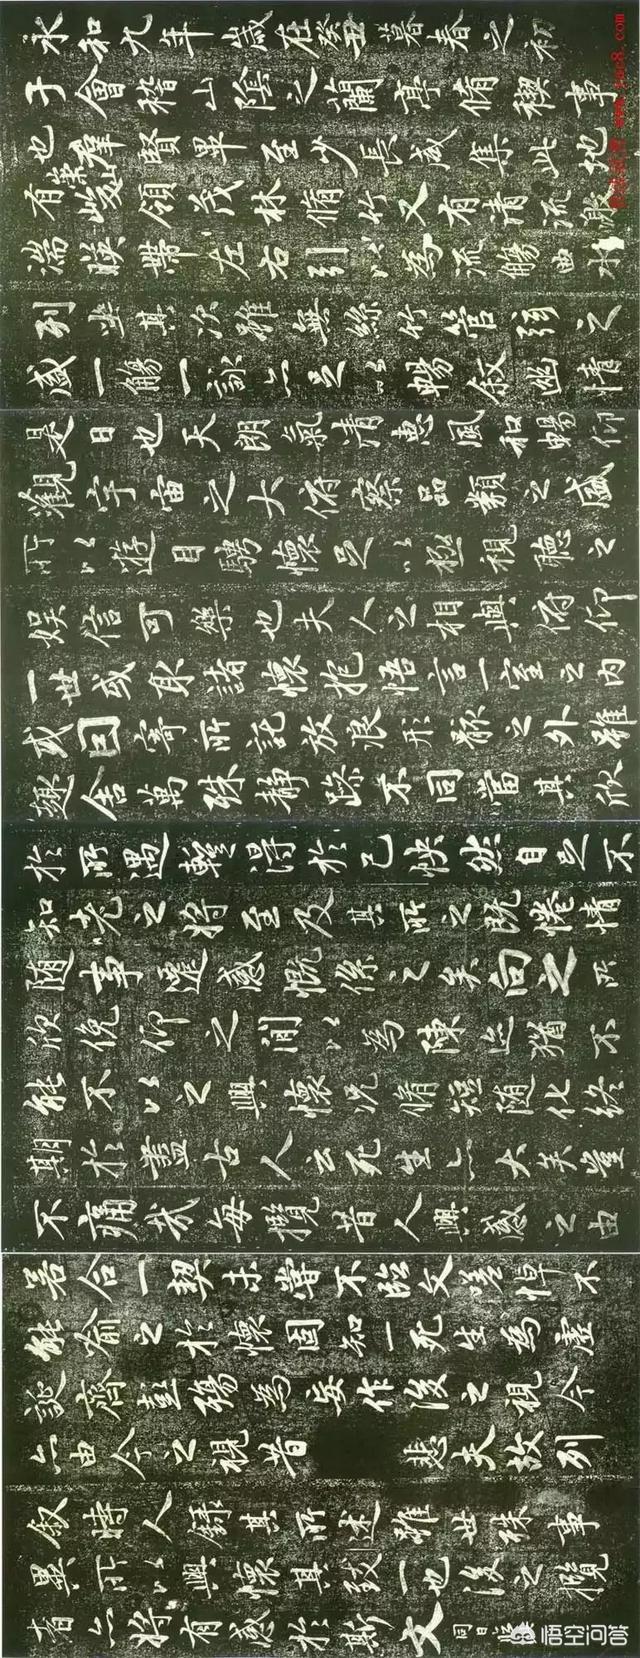 永和九年歲在癸丑暮春之初
于會稽山陰之蘭亭脩稧事
也羣賢畢至少長咸集此地
有崇山峻領茂林脩竹又有清流激
湍暎帶左右引以為流觴曲水
列坐其次雖無絲竹管弦之
盛一觴一詠亦足以暢叙幽情
是日也天朗氣清惠風和暢仰
觀宇宙之大俯察品類之盛
所以遊目騁懷足以極視聽之
娛信可樂也夫人之相與俯仰
一世或取諸懷抱悟言一室之內
或因寄所託放浪形骸之外雖
趣舍萬殊靜躁不同當其欣
於所遇蹔得於己快然自足不
知老之將至及其所之既惓情
隨事遷感慨係之矣向之所
欣俛仰之閒以為陳迹猶不
能不以之興懷況脩短隨化終
期於盡古人云死生亦大矣豈
不痛哉每攬昔人興感之由
若合一契未嘗不臨文嗟悼不
能喻之於懷固知一死生為虛
誕齊彭殤為妄作後之視今
亦由今之視昔悲夫故列
叙時人錄其所述雖世殊事
異所以興懷其致一也後之攬
者亦將有感於斯文
悟空问答